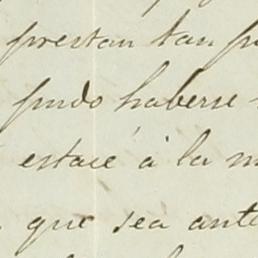 prestan tan
pudo haberse
estaré á la
que sea ante